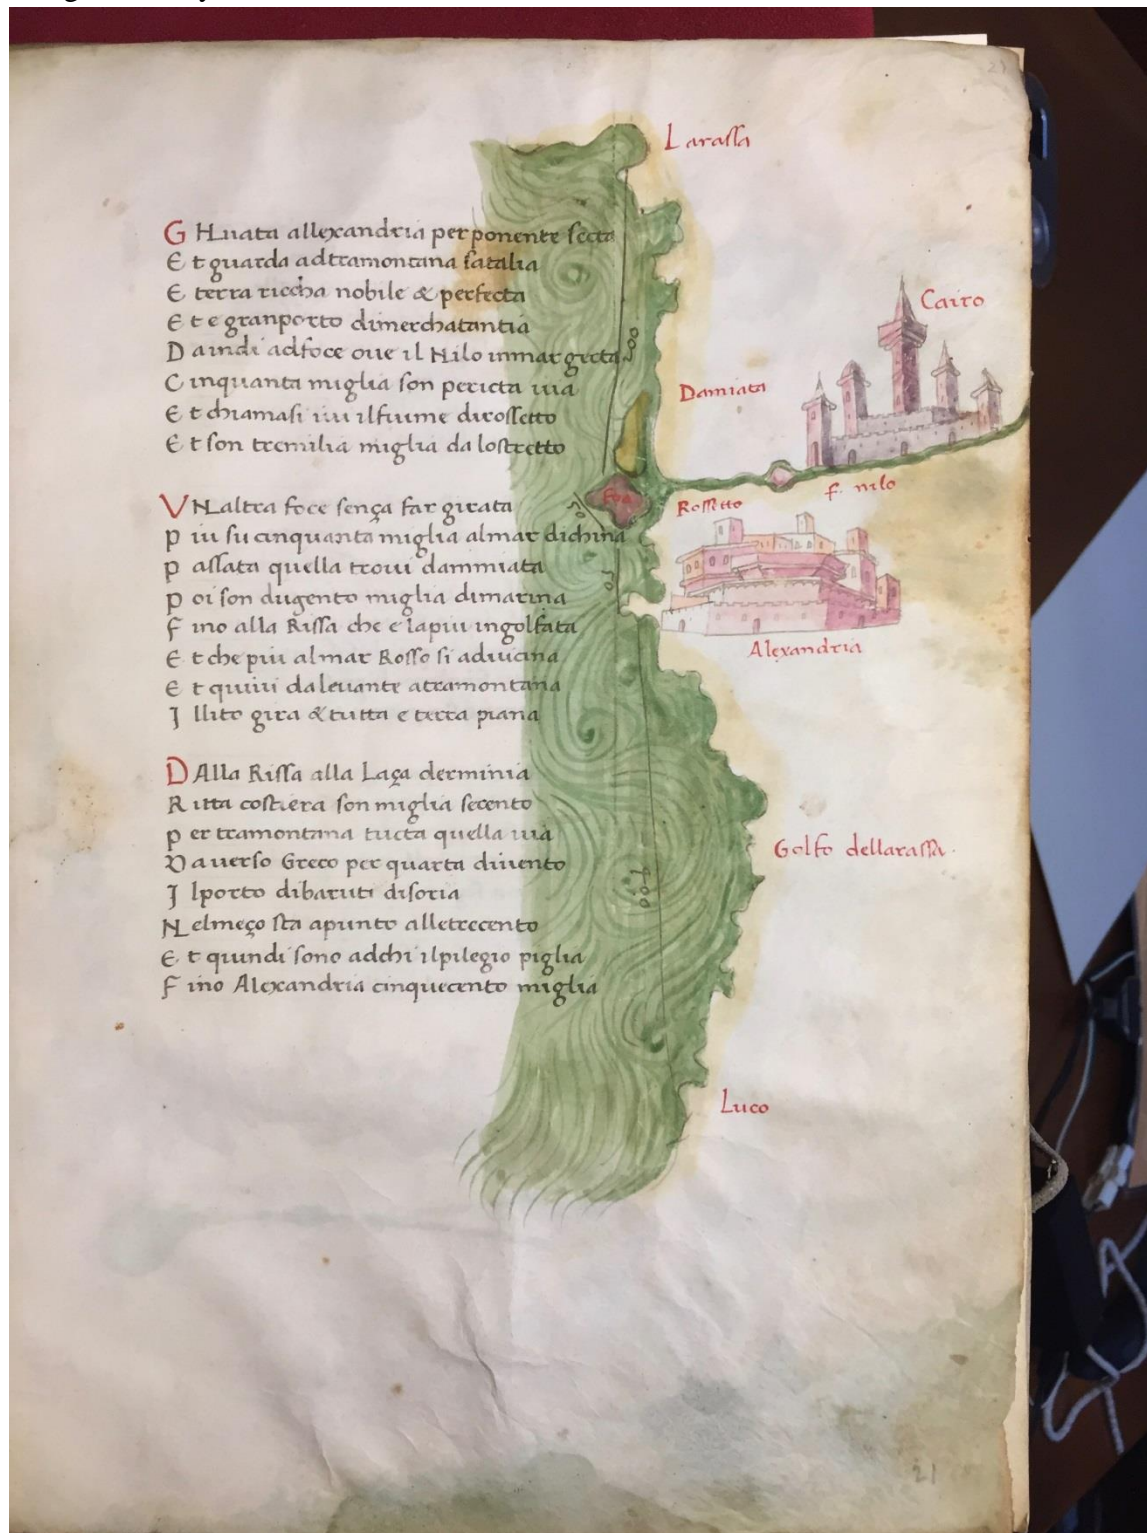 Larassa
G Huata allexandria per ponente secta
E t guarda adtramontana satalia
E terra riccha nobile & perfecta
E t e granporto dimerchatantia
D aindi adfoce oue il Nilo inmar gecta
C inquanta miglia son pericta uia
E t chiamasi iui ilfiume dirossetto
E t son tremilia miglia da lostretto
Cairo
200
Damiata
f. nilo
foa
Rossetto
50
50
Alexandria
V Naltra foce sença far girata
P iu su cinquanta miglia almar dichina
P assata quella troui dammiata
P oi son dugento miglia dimarina
F ino alla Rissa che e lapiu ingolfata
E t che piu almar Rosso si aduicina
E t quiui daleuante atramontana
I llito gira & tutta e terra piana
D Alla Rissa alla Laça derminia
R itta costiera son miglia secento
P er tramontana tucta quella uia
V auerso Greco per quarta diuento
I lporto dibaruti disoria
N elmeço sta apunto alletrecento
E t quindi sono adchi ilpilegio piglia
F ino Alexandria cinquecento miglia
Golfo dellarassa.
Luco
21